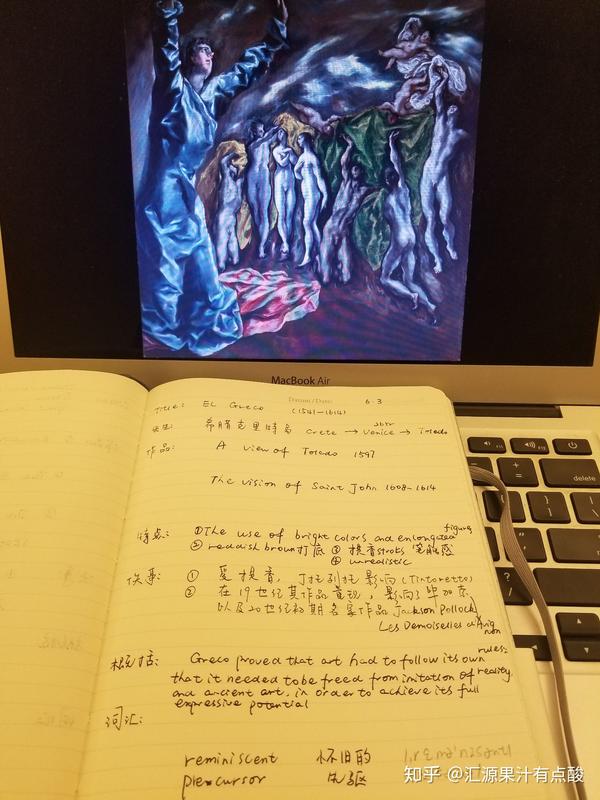 MacBook Air
Datum / Date: 6.3
Title: EL Greco (1541-1614)
希腊克里特岛 Crete → Venice → Toledo
作品: A view of Toledo 1597
The vision of Saint John 1608-1614
特点: ①The use of bright colors and enlongated figure
② reddish brown打底 ③ 提香stroks 笔触感
④ unrealistic
佚事: ① 爱提香, 丁托列托影响 (Tintoretto)
② 在19世纪其作品重现, 影响了毕加索
以及20世纪初期名家作品 Jackson Pollock
Les Demoiselles d'Avignon
概括: Greco proved that art had to follow its own rules:
that it needed to be freed from imitation of reality
and ancient art, in order to achieve its full
expressive potential
词汇:
reminiscent 怀旧的
precursor 先驱
知乎 @汇源果汁有点酸